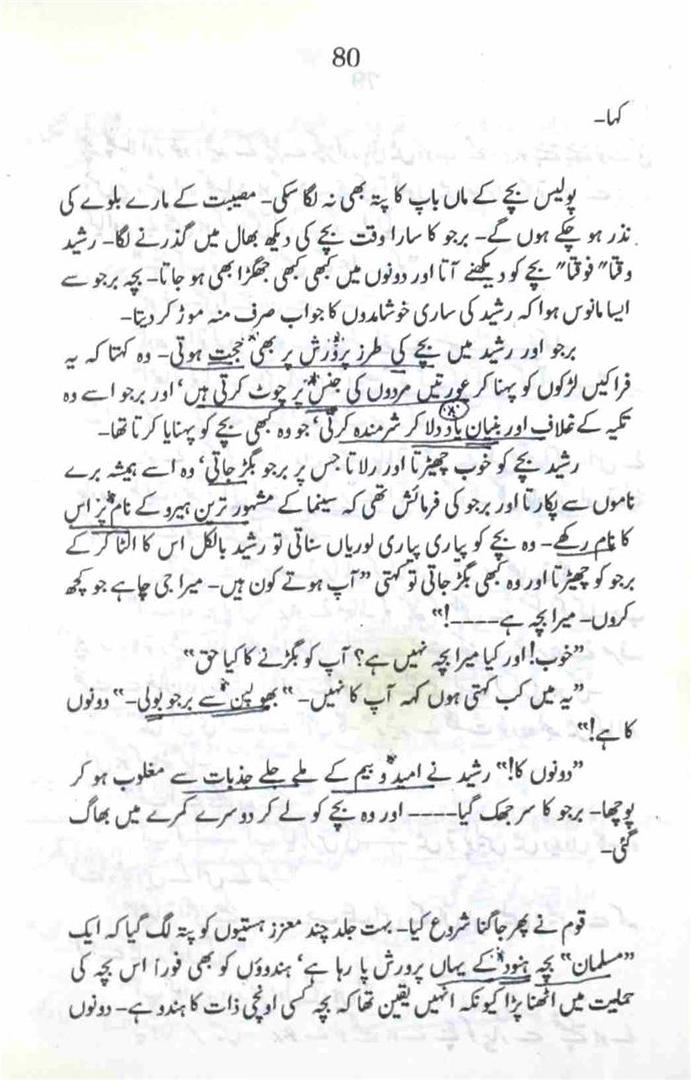 80
کہا۔
پولیس بچے کے ماں باپ کا پتہ بھی نہ لگا سکی۔ مصیبت کے مارے بلوے کی
نذر ہو چکے ہوں گے۔ برجو کا سارا وقت بچے کی دیکھ بھال میں گذرنے لگا۔ رشید
وقتا" فوقتا" بچے کو دیکھنے آتا اور دونوں میں کبھی کبھی جھگڑا بھی ہو جاتا۔ بچہ برجو سے
ایسا مانوس ہوا کہ رشید کی ساری خوشامدوں کا جواب صرف منہ موڑ کر دیتا۔
برجو اور رشید میں بچے کی طرز پرورش پر بھی حجت ہوتی۔ وہ کہتا کہ یہ
فراکیں لڑکوں کو پہنا کر عورتیں مردوں کی جنس پر چوٹ کرتی ہیں، اور برجو اسے وہ
تکیہ کے غلاف اور بنیان یاد دلا کر شرمندہ کرتی، جو وہ کبھی بچے کو پہنایا کرتا تھا۔
رشید بچے کو خوب چھیڑتا اور رلاتا جس پر برجو بگڑ جاتی، وہ اسے ہمیشہ برے
ناموں سے پکارتا اور برجو کی فرمائش تھی کہ سینما کے مشہور ترین ہیرو کے نام پر اس
کا نام رکھے۔ وہ بچے کو پیاری پیاری لوریاں سناتی تو رشید بالکل اس کا الٹا کر کے
برجو کو چھیڑتا اور وہ کبھی بگڑ جاتی تو کہتی "آپ ہوتے کون ہیں۔ میرا جی چاہے جو کچھ
کروں۔ میرا بچہ ہے۔۔۔۔!"
"خوب! اور کیا میرا بچہ نہیں ہے؟ آپ کو بگڑنے کا کیا حق"
"یہ میں کب کہتی ہوں کہ آپ کا نہیں۔" بھولپن سے برجو بولی۔" دونوں
کا ہے!"
"دونوں کا!" رشید نے امید و بیم کے ملے جلے جذبات سے مغلوب ہو کر
پوچھا۔ برجو کا سر جھک گیا۔۔۔۔ اور وہ بچے کو لے کر دوسرے کمرے میں بھاگ
گئی۔
قوم نے پھر جاگنا شروع کیا۔ بہت جلد چند معزز ہستیوں کو پتہ لگ گیا کہ ایک
"مسلمان" بچہ ہنود کے یہاں پرورش پا رہا ہے، ہندوؤں کو بھی فوراً اس بچہ کی
حملیت میں اٹھنا پڑا کیونکہ انہیں یقین تھا کہ بچہ کسی اونچی ذات کا ہندو ہے۔ دونوں